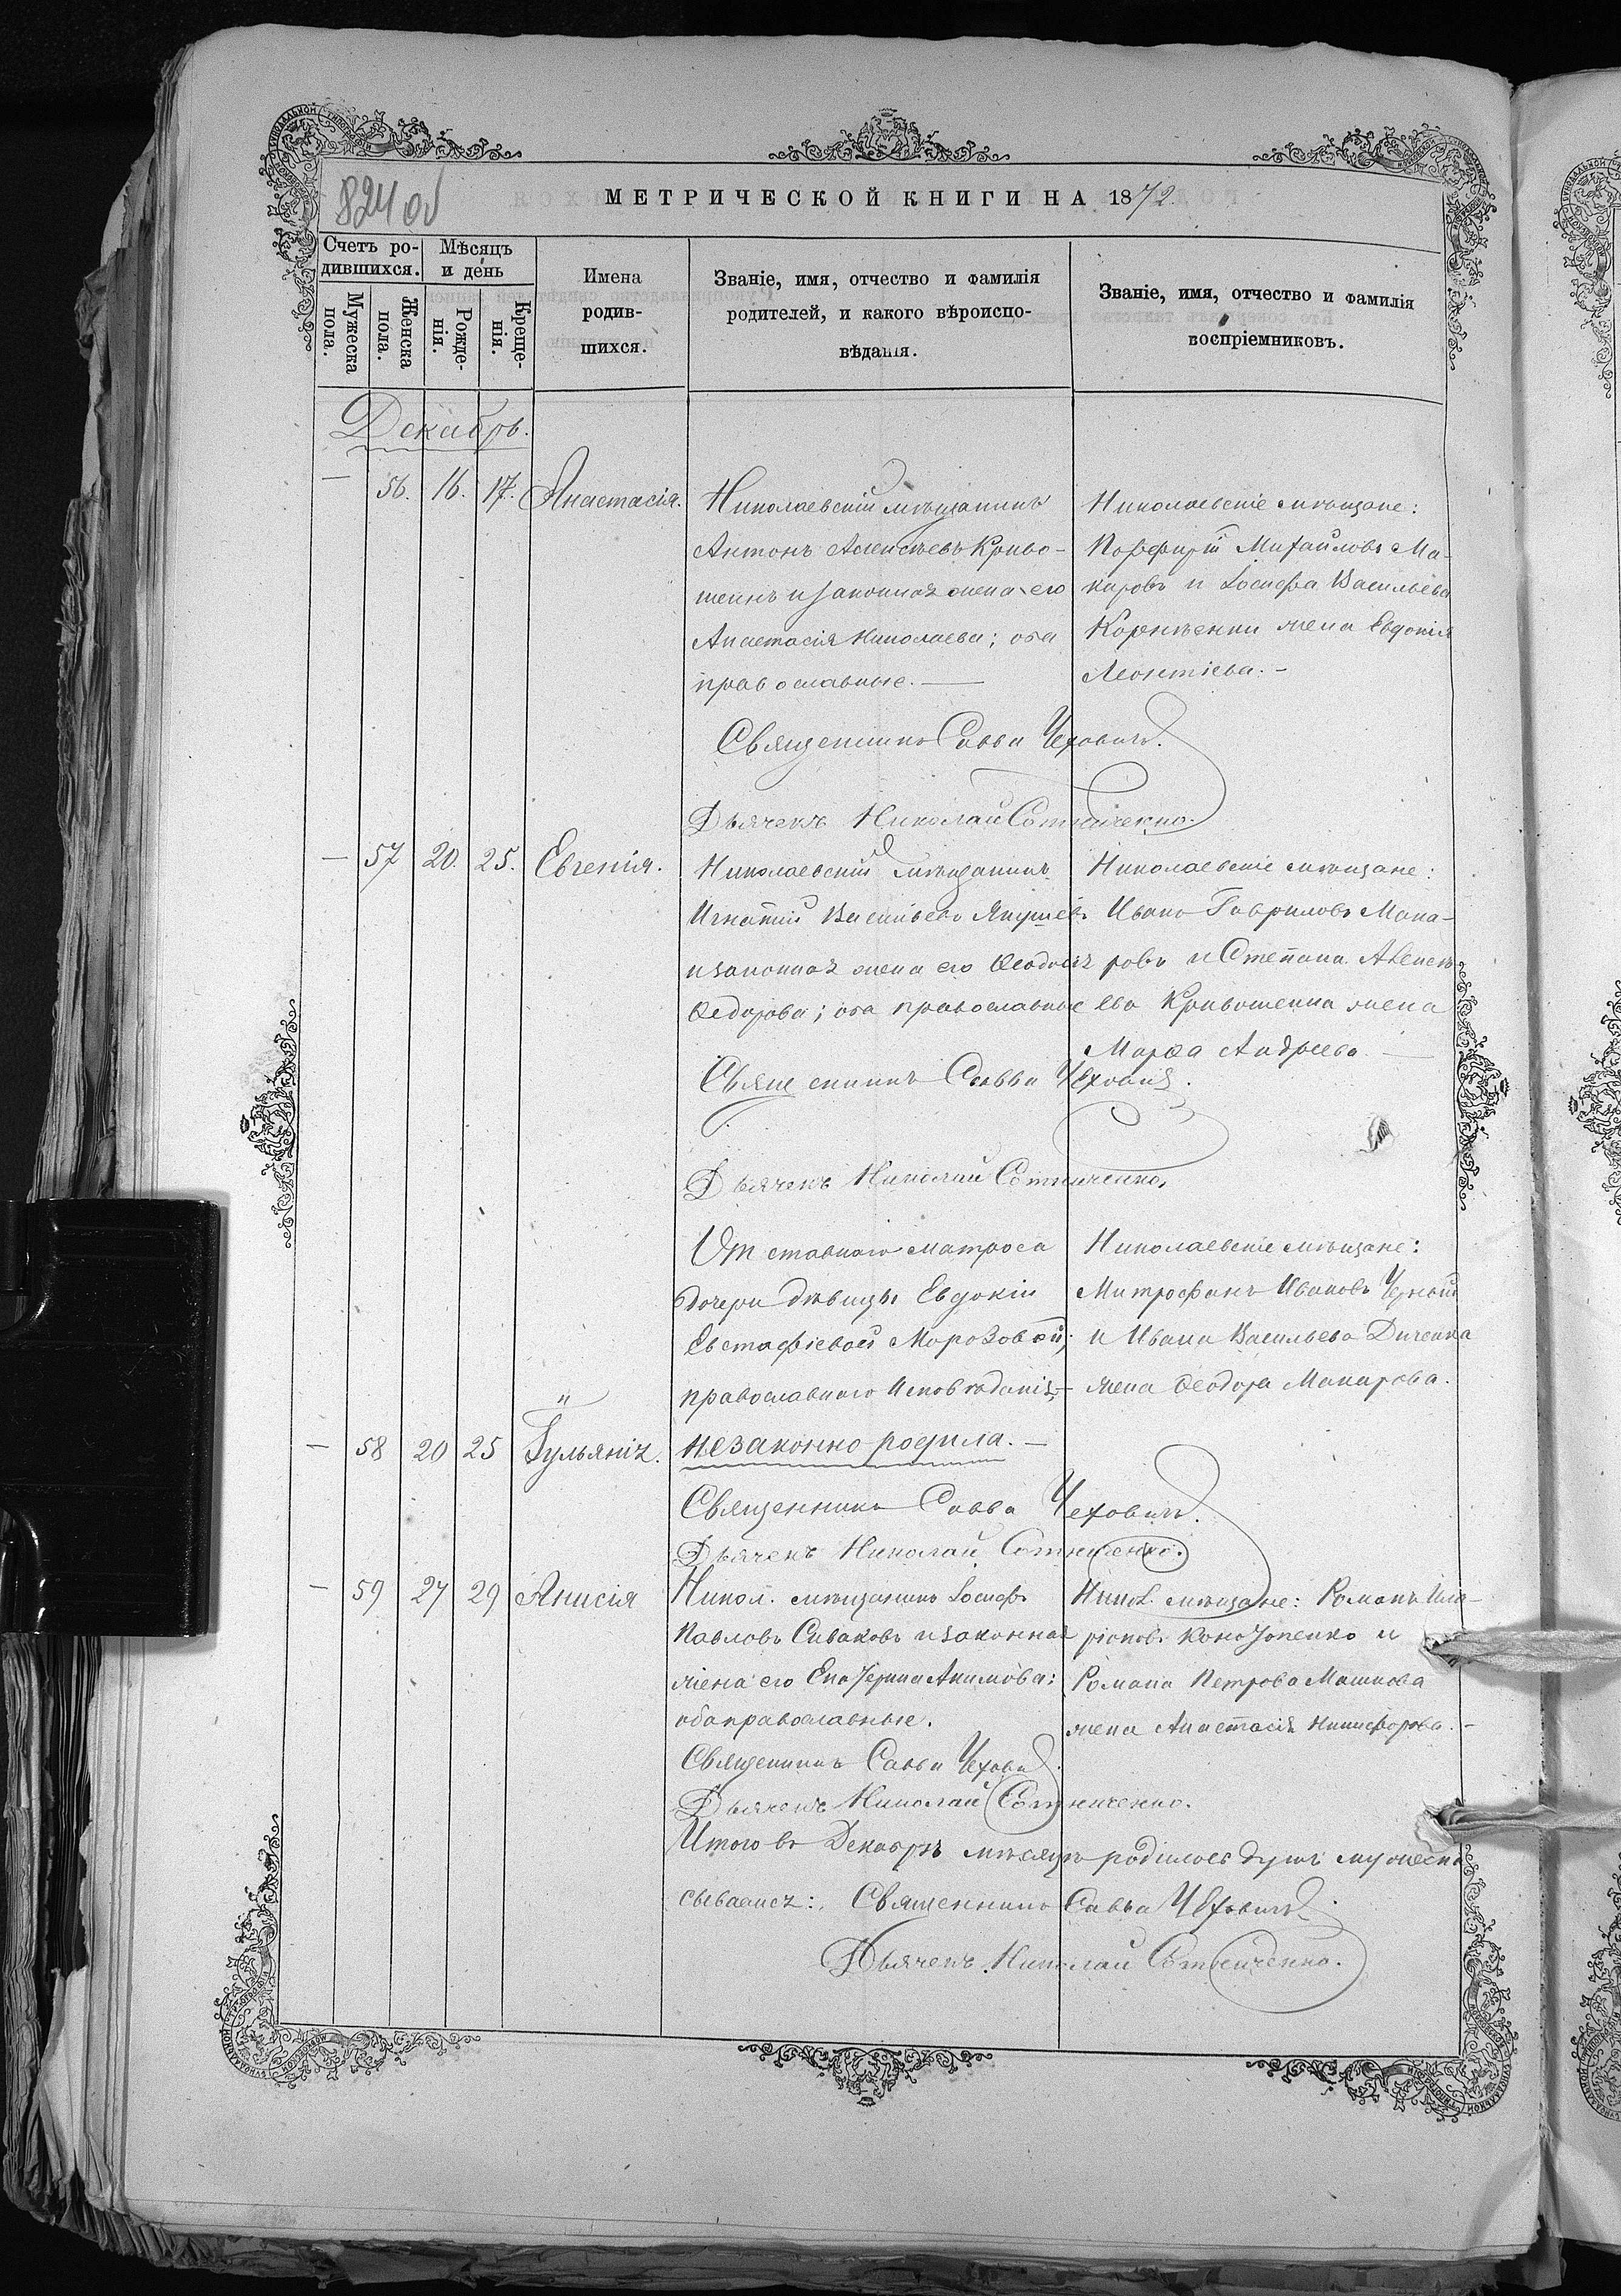 824 об
МЕТРИЧЕСКОЙ КНИГИ НА 1872
Счетъ ро-
дившихся.
Мѣсяцъ
и день
Мужеска
пола.
Женска
пола.
Рожде-
нія.
Креще-
нія.
Имена
родив-
шихся.
Званіе, имя, отчество и фамилія
родителей, и какого вѣроиспо-
вѣданія.
Званіе, имя, отчество и фамилія
воспріемниковъ.
Декабрь.
— 56. 16. 17. Анастасія.
Николаевскій мѣщанинъ
Антонъ Алексѣевъ Криво-
шеинъ и законная жена его
Анастасія Николаева; оба
православные. —
Николаевскіе мѣщане:
Порфирій Михайловъ Ма-
каровъ и Іосифа Васильева
Корнѣенки жена Евдокія
Леонтіева. —
Священникъ Савва Чеховичъ.
Дьячекъ Николай Сотниченко.
— 57 20. 25. Евгенія.
Николаевскій мѣщанинъ
Игнатій Васильевъ Якушевъ
и законная жена его Ѳеодосія
Ѳедорова; оба православные
Николаевскіе мѣщане:
Иванъ Гавриловъ Мака-
ровъ и Степана Алексѣ-
ева Кривошеина жена
Марѳа Андреева. —
Священникъ Савва Чеховичъ.
Дьячекъ Николай Сотниченко.
Отставного матроса
дочери дѣвицы Евдокіи
Евстафіевой Морозовой;
православнаго исповѣданія, —
— 58 20 25 Іульянія.
незаконно родила. —
Николаевскіе мѣщане:
Митрофанъ Ивановъ Черный
и Ивана Васильева Диченка
жена Ѳеодора Макарова.
Священникъ Савва Чеховичъ.
Дьячекъ Николай Сотниченко.
— 59 27 29 Анисія
Никол. мѣщанинъ Іосифъ
Павловъ Сиваковъ и законная
жена его Екатерина Акимова:
оба православные.
Никол. мѣщане: Романъ Ила-
ріоновъ Конопенко и
Романа Петрова Машкова
жена Анастасія Никифорова. —
Священникъ Савва Чеховичъ.
Дьячекъ Николай Сотниченко.
Итого въ Декабрѣ мѣсяцѣ родилось душъ мужеска
Священникъ Савва Чеховичъ.
Дьячекъ Николай Сотниченко.